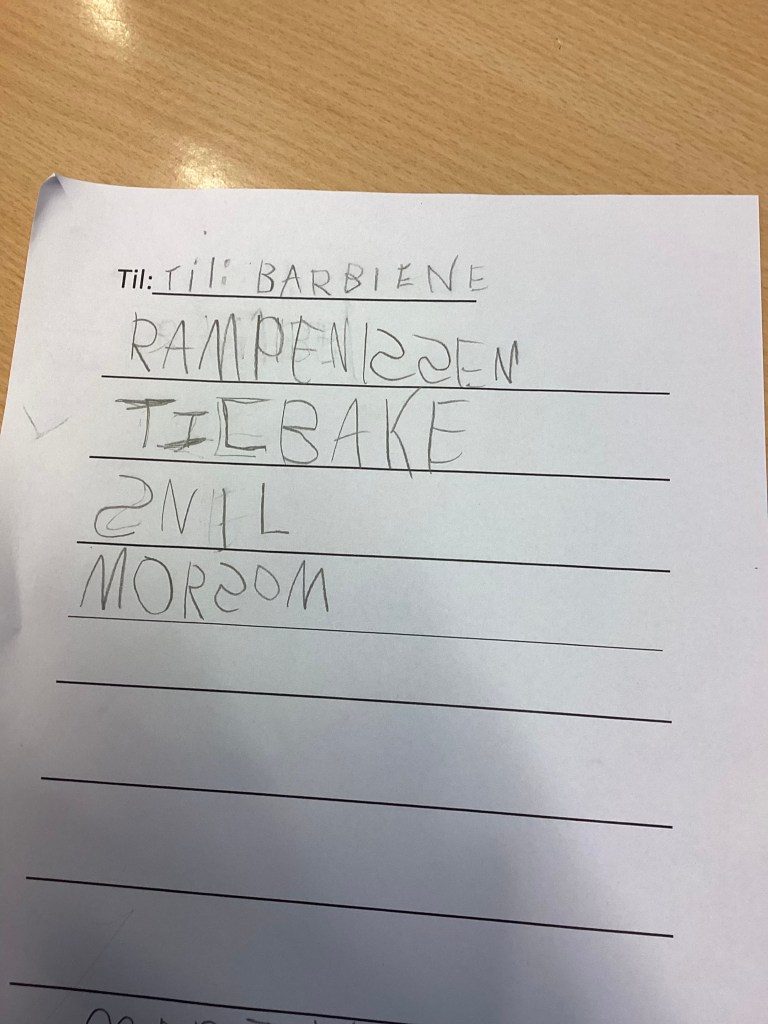 Til: Til: BARBIENE
RAMPENISSEN
TILBAKE
SNIL
MORSOM